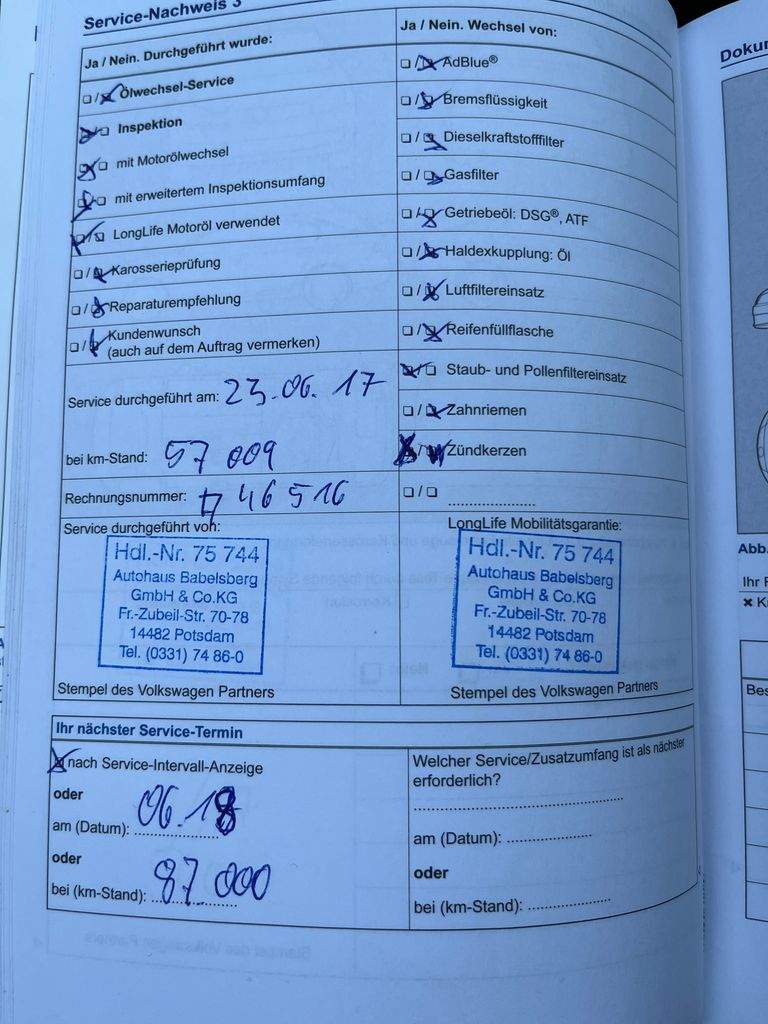 Service-Nachweis 3
Ja / Nein. Durchgeführt wurde:
Ölwechsel-Service
Inspektion
mit Motorölwechsel
mit erweitertem Inspektionsumfang
LongLife Motoröl verwendet
Karosserieprüfung
Reparaturempfehlung
Kundenwunsch
(auch auf dem Auftrag vermerken)
Service durchgeführt am: 23.06.17
bei km-Stand: 57 009
Rechnungsnummer: 46516
Service durchgeführt von:
Hdl.-Nr. 75 744
Autohaus Babelsberg
GmbH & Co.KG
Fr.-Zubeil-Str. 70-78
14482 Potsdam
Tel. (0331) 74 86-0
Stempel des Volkswagen Partners
Ja / Nein. Wechsel von:
AdBlue®
Bremsflüssigkeit
Dieselkraftstofffilter
Gasfilter
Getriebeöl: DSG®, ATF
Haldexkupplung: Öl
Luftfiltereinsatz
Reifenfüllflasche
Staub- und Pollenfiltereinsatz
Zahnriemen
Zündkerzen
LongLife Mobilitätsgarantie:
Hdl.-Nr. 75 744
Autohaus Babelsberg
GmbH & Co.KG
Fr.-Zubeil-Str. 70-78
14482 Potsdam
Tel. (0331) 74 86-0
Stempel des Volkswagen Partners
Ihr nächster Service-Termin
nach Service-Intervall-Anzeige
oder
am (Datum): 06.18
oder
bei (km-Stand): 87.000
Welcher Service/Zusatzumfang ist als nächster
erforderlich?
am (Datum):
oder
bei (km-Stand):
Abb.